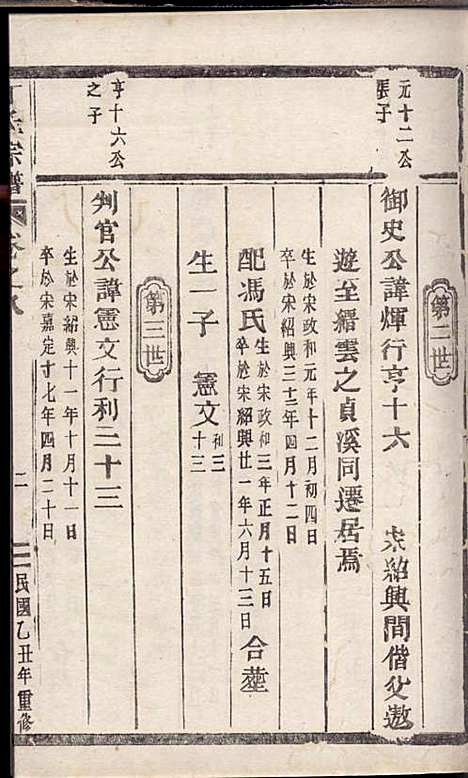 第二世
元十二公
長子
御史公諱煇行亨十六 宋紹興間偕父遨
遊至縉雲之貞溪同遷居焉
生於宋政和元年十二月初四日
卒於宋紹興三十三年四月十二日
配馮氏 生於宋政和三年正月十五日 合塟
卒於宋紹興廿一年六月十三日
生一子 憲文 利三
十三
第三世
亨十六公
之子
判官公諱憲文行利三十三
生於宋紹興十一年十月十一日
卒於宋嘉定十七年四月二十日
宗譜 卷之 二 民國乙丑年重修